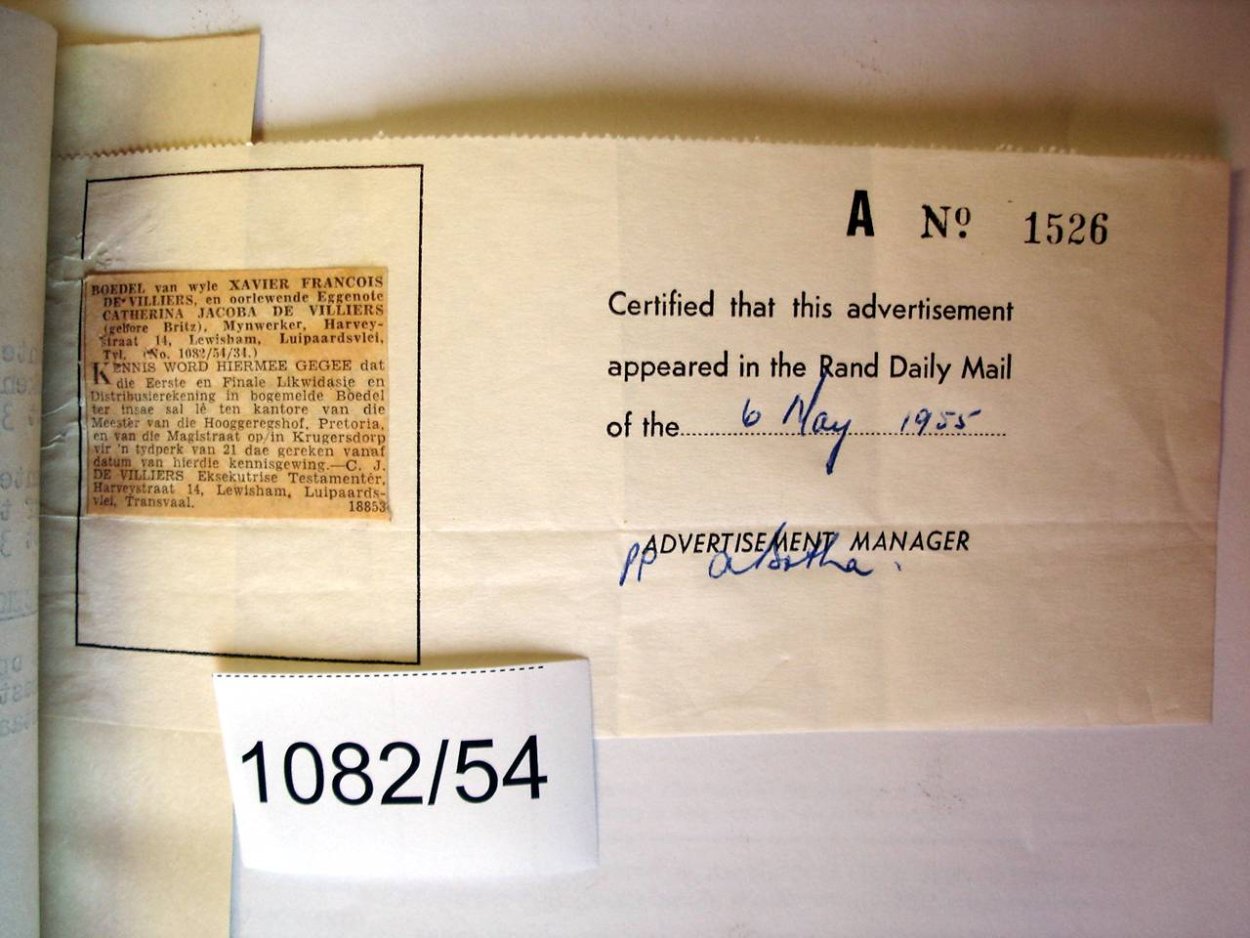 BOEDEL van wyle XAVIER FRANCOIS
DE VILLIERS, en oorlewende Eggenote
CATHERINA JACOBA DE VILLIERS
(gebore Britz), Mynwerker, Harvey-
straat 14, Lewisham, Luipaardsvlei,
Tvl. (No. 1082/54/34.)
KENNIS WORD HIERMEE GEGEE dat
die Eerste en Finale Likwidasie en
Distribusierekening in bogemelde Boedel
ter insae sal lê ten kantore van die
Meester van die Hooggeregshof, Pretoria,
en van die Magistraat op/in Krugersdorp
vir 'n tydperk van 21 dae gereken vanaf
datum van hierdie kennisgewing.—C. J.
DE VILLIERS Eksekutrise Testamentêr,
Harveystraat 14, Lewisham, Luipaards-
vlei, Transvaal. 18853
A No. 1526
Certified that this advertisement
appeared in the Rand Daily Mail
of the 6 May 1955
ADVERTISEMENT MANAGER
pp aBotha.
1082/54